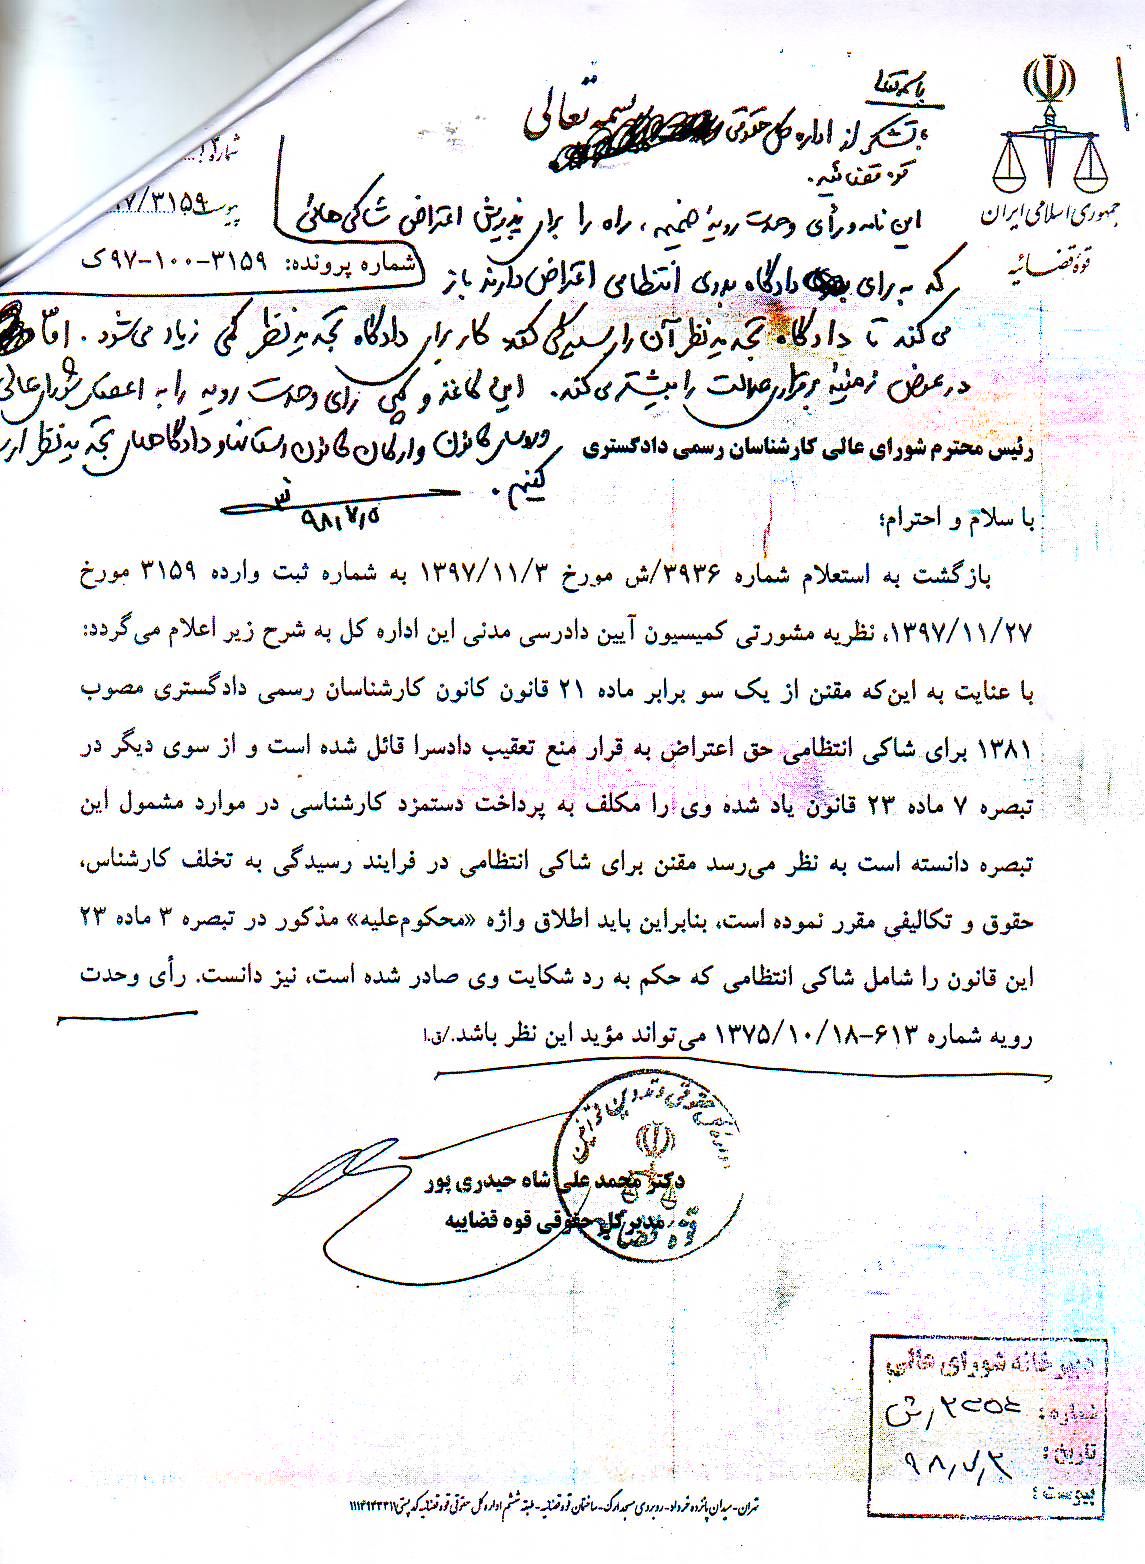 باسمه تعالی
بسمه تعالی
با تشکر از اداره کل حقوقی
قوه قضائیه.
جمهوری اسلامی ایران
قوه قضائیه
شماره
پیوست
۹۷/۳۱۵۹
این نامه و رأی وحدت رویهٔ ضمیمه، راه را برای پذیرش اعتراض شاکی‌هائی
شماره پرونده: ۳۱۵۹-۱۰۰-۹۷ک
که به رای دادگاه بدوی انتظامی اعتراض دارند باز
می‌کند تا دادگاه تجدیدنظر آن را رسیدگی کند کار برای دادگاه تجدیدنظر کمی زیاد می‌شود. امّا
در عوض زمینهٔ برقراری عدالت را بیشتر می‌کند. این کاغذ و کپی رای وحدت رویه را به اعضای شورای عالی
و روسای کانون و ارکان کانون استانها و دادگاههای تجدیدنظر ارسال
کنیم.
۹۸/۷/۵
رئیس محترم شورای عالی کارشناسان رسمی دادگستری
با سلام و احترام؛
بازگشت به استعلام شماره ۳۹۳۶/ش مورخ ۱۳۹۷/۱۱/۳ به شماره ثبت وارده ۳۱۵۹ مورخ
۱۳۹۷/۱۱/۲۷، نظریه مشورتی کمیسیون آیین دادرسی مدنی این اداره کل به شرح زیر اعلام می‌گردد:
با عنایت به این‌که مقنن از یک سو برابر ماده ۲۱ قانون کانون کارشناسان رسمی دادگستری مصوب
۱۳۸۱ برای شاکی انتظامی حق اعتراض به قرار منع تعقیب دادسرا قائل شده است و از سوی دیگر در
تبصره ۷ ماده ۲۳ قانون یاد شده وی را مکلف به پرداخت دستمزد کارشناسی در موارد مشمول این
تبصره دانسته است به نظر می‌رسد مقنن برای شاکی انتظامی در فرایند رسیدگی به تخلف کارشناس،
حقوق و تکالیفی مقرر نموده است، بنابراین باید اطلاق واژه «محکوم‌علیه» مذکور در تبصره ۳ ماده ۲۳
این قانون را شامل شاکی انتظامی که حکم به رد شکایت وی صادر شده است، نیز دانست. رأی وحدت
رویه شماره ۶۱۳-۱۳۷۵/۱۰/۱۸ می‌تواند مؤید این نظر باشد./ق.ا
اداره کل حقوقی و تدوین قوانین
قوه قضائیه
دکتر محمد علی شاه حیدری پور
مدیرکل حقوقی قوه قضاییه
دبیرخانه شورای عالی
شماره:
تاریخ: ۹۸/۷/۲
پیوست:
تهران-میدان پانزده خرداد-روبروی مسجد ارک-ساختمان قوه قضائیه-طبقه ششم اداره کل حقوقی قوه قضائیه کد پستی ۱۱۱۴۹۴۳۳۱۷